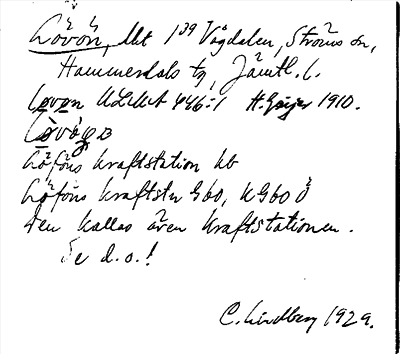 Lövön, lht 1³⁹ Vågdalen, Ströms sn,
Hammerdals tg, Jämtl. l.
Lövön ULMA 446:1 H. Geijer 1910.
Löföns kraftstation kb
Löföns kraftstn Gbo, KGbo Ö
Den kallas även kraftstationen.
Se d.o.!
C. Lindberg 1929.